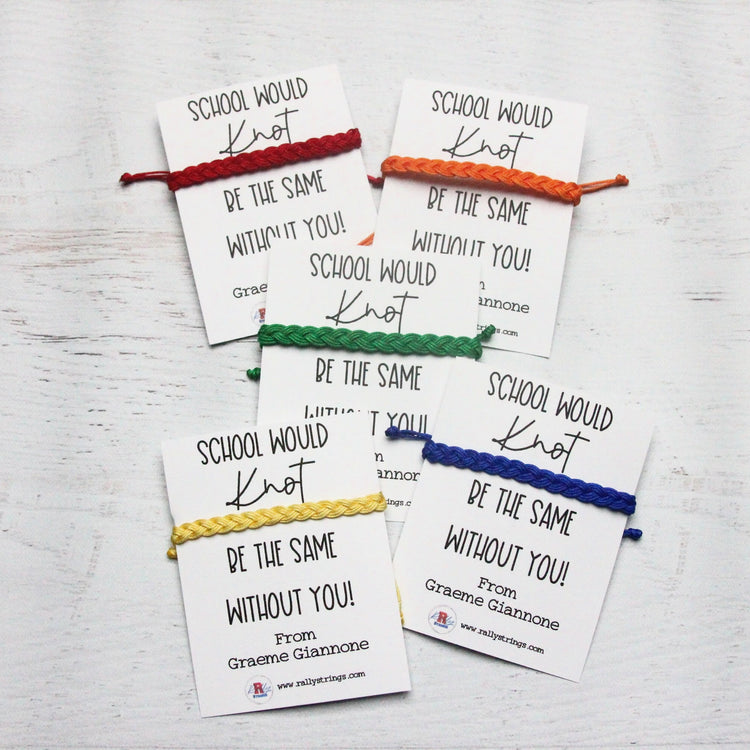 SCHOOL WOULD
Knot
BE THE SAME
WITHOUT YOU!
Grae
SCHOOL WOULD
Knot
BE THE SAME
WITHOUT YOU!
m
annone
ngs.com
SCHOOL WOULD
Knot
BE THE SAME
WITHOUT YOU!
m
Giannone
ngs.c
SCHOOL WOULD
Knot
BE THE SAME
WITHOUT YOU!
From
Graeme Giannone
R
www.rallystrings.com
SCHOOL WOULD
Knot
BE THE SAME
WITHOUT YOU!
From
Graeme Giannone
R
www.rallystrings.com